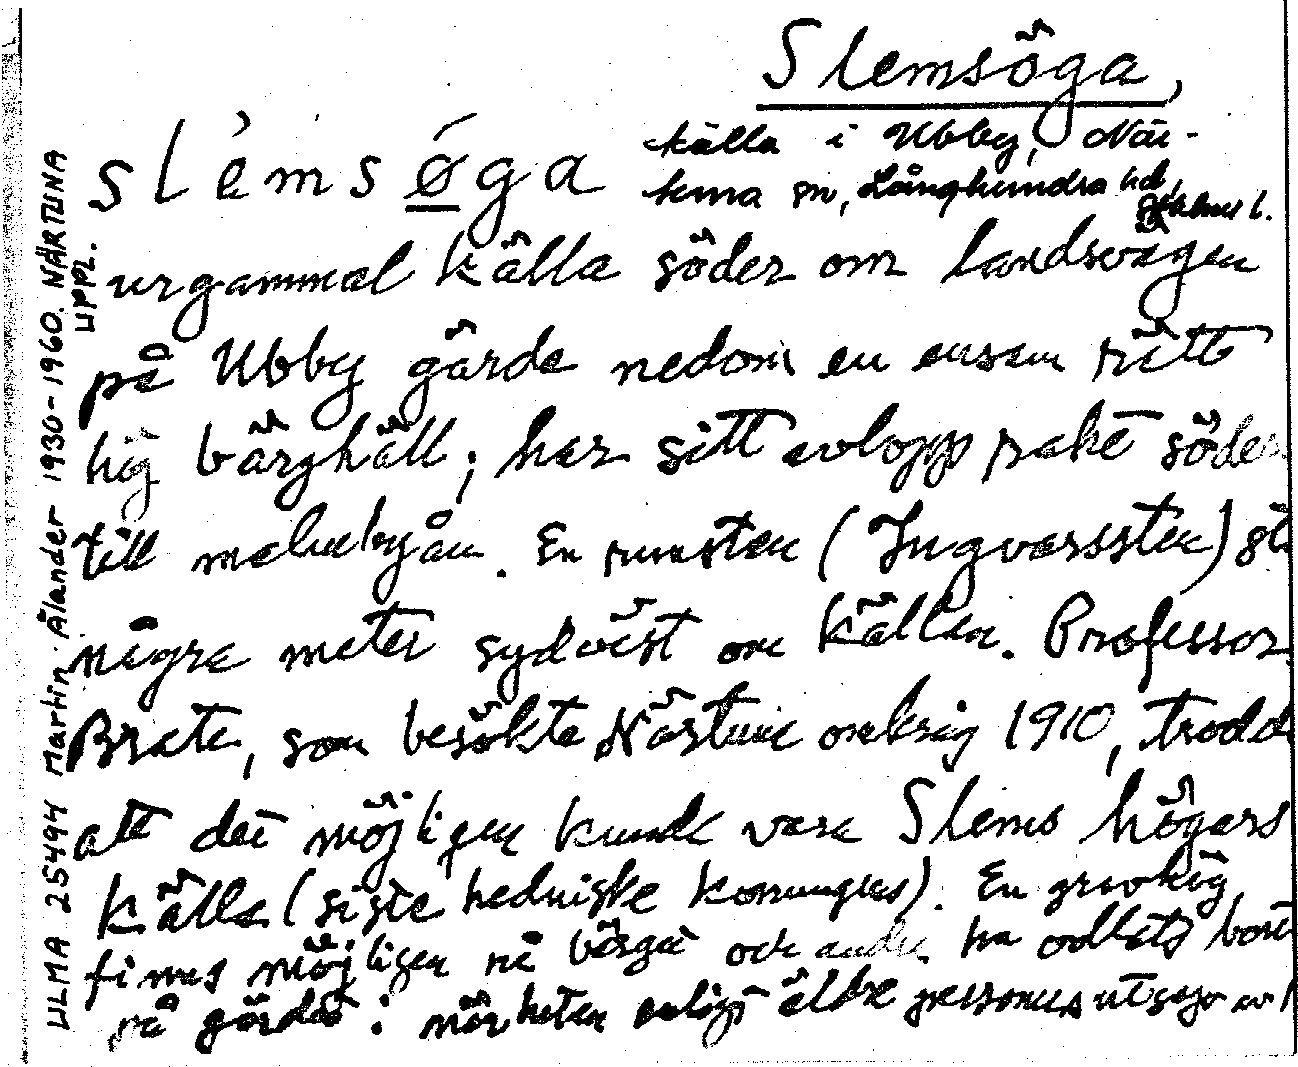 Slemsöga,
källa i Ubby, När-
tuna sn, Långhundra hd,
slemsøga
urgammal källa söder om landsvägen
på Ubby gärde nedom en ensam rätt
hög bärghäll; har sitt avlopp rakt söder
till malmbyån. En runsten (Ingvarssten) st
några meter sydväst om källan. Professor
Brate, som besökte Närtuna omkring 1910, trodde
att det möjligen kunde vara Slems högars
källa (siste hedniske konungens). En gravhög
finns möjligen på bärget och andra ha odlats bort
på gärdet i närheten enligt äldre personers utsago av
ULMA 25494 Martin Ålander 1930-1960. NÄRTUNA
UPPL.